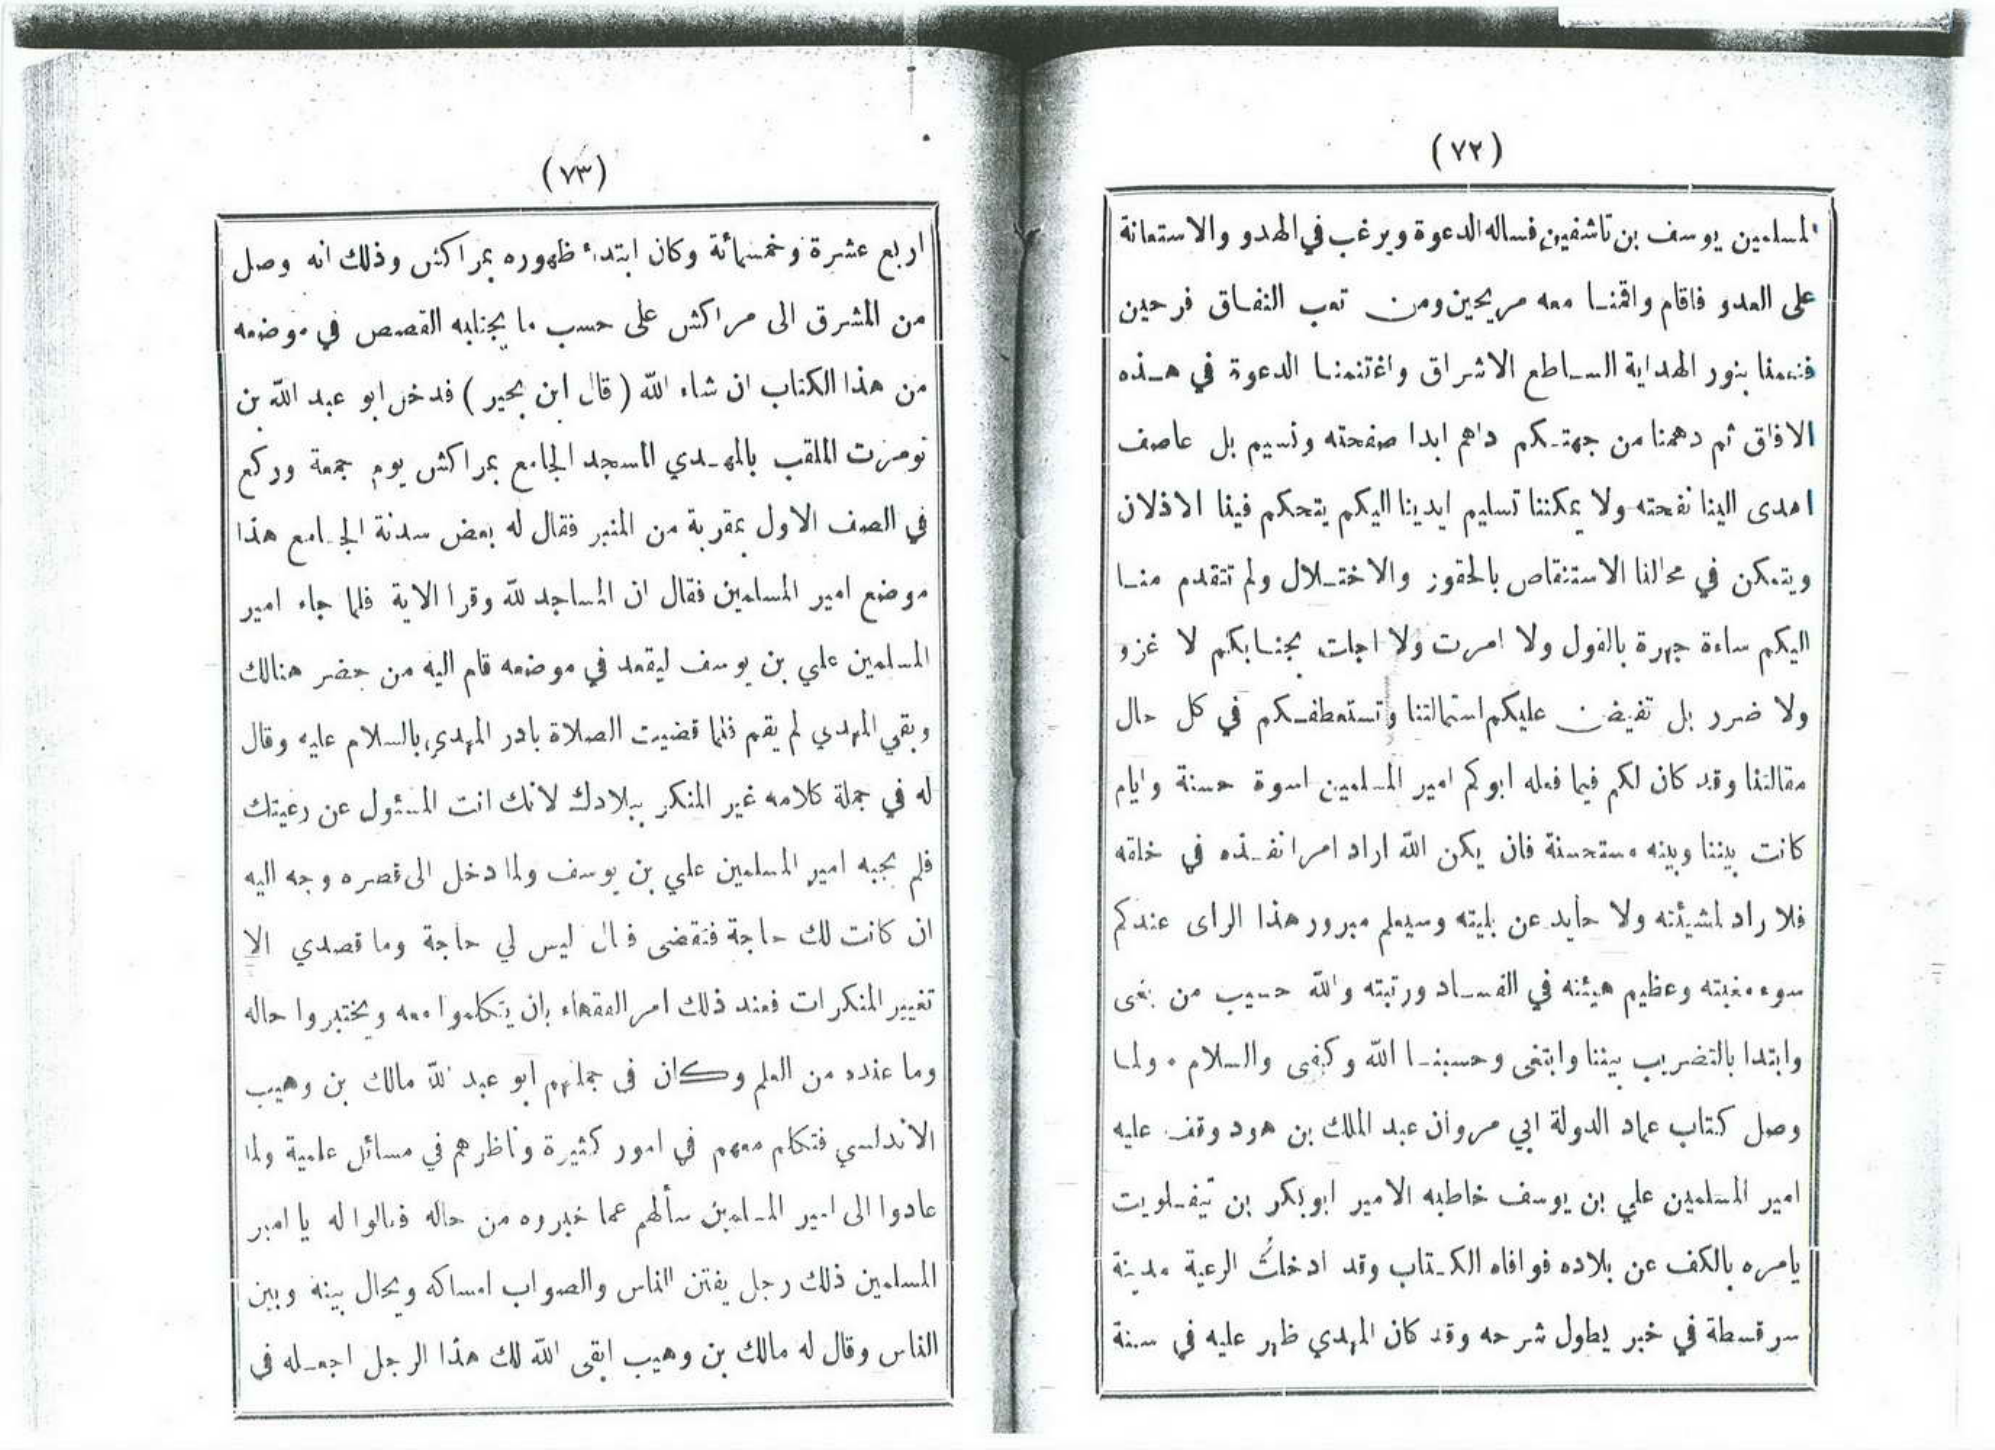 (٧٢)
المسلمين يوسف بن تاشفين فساله الدعوة ويرغب في الهدو والاستعانة
على العدو فاقام واقمنا معه مريحين ومن تعب النفاق فرحين
فنعمنا بنور الهداية الساطع الاشراق واغتنمنا الدعوة في هذه
الافاق ثم دهمنا من جهتكم داهم ابدا صفحته ونسيم بل عاصف
اهدى الينا نفحته ولا يمكننا تسليم ايدينا اليكم يتحكم فينا الاذلان
ويتمكن في محالنا الاستنقاص بالحقوز والاختلال ولم تتقدم منا
اليكم ساءة جهرة بالقول ولا امرت ولا اجلت بجنابكم لا غزو
ولا ضرر بل تفيض عليكم استمالتنا وتستعطفكم في كل حال
مقالتنا وقد كان لكم فيما فعله ابوكم امير المسلمين اسوة حسنة وايام
كانت بيننا وبينه مستحسنة فان يكن الله اراد امرا نفذه في خلقه
فلا راد لمشيئته ولا حايد عن بليته وسيعلم مبرور هذا الراى عندكم
سوء مغبته وعظيم هيئته في الفساد ورتبته والله حسيب من بغى
وابتدا بالتضريب بيننا وابتغى وحسبنا الله وكفى والسلام ٠ ولما
وصل كتاب عماد الدولة ابي مروان عبد الملك بن هود وقف عليه
امير المسلمين علي بن يوسف خاطبه الامير ابو بكر بن تيفلويت
يامره بالكف عن بلاده فوافاه الكتاب وقد ادخلتُ الرعية مدينة
سرقسطة في خبر يطول شرحه وقد كان المهدي ظهر عليه في سنة
(٧٣)
اربع عشرة وخمسمائة وكان ابتداء ظهوره بمراكش وذلك انه وصل
من المشرق الى مراكش على حسب ما يجتابه القصص في موضعه
من هذا الكتاب ان شاء الله (قال ابن بجير) فدخل ابو عبد الله بن
تومرت الملقب بالمهدي المسجد الجامع بمراكش يوم جمعة وركع
في الصف الاول بمقربة من المنبر فقال له بعض سدنة الجامع هذا
موضع امير المسلمين فقال ان المساجد لله وقرأ الاية فلما جاء امير
المسلمين علي بن يوسف ليقعد في موضعه قام اليه من حضر هنالك
وبقي المهدي لم يقم فلما قضيت الصلاة بادر المهدي بالسلام عليه وقال
له في جملة كلامه غير المنكر ببلادك لانك انت المسئول عن رعيتك
فلم يجبه امير المسلمين علي بن يوسف ولما دخل الى قصره وجه اليه
ان كانت لك حاجة فتقضى فقال ليس لي حاجة وما قصدي الا
تغيير المنكرات فعند ذلك امر الفقهاء بان يتكلموا معه ويختبروا حاله
وما عنده من العلم وكان في جملتهم ابو عبد الله مالك بن وهيب
الاندلسي فتكلم معهم في امور كثيرة وناظرهم في مسائل علمية ولما
عادوا الى امير المسلمين سألهم عما خبروه من حاله فقالوا له يا امير
المسلمين ذلك رجل يفتن الناس والصواب امساكه ويحال بينه وبين
الناس وقال له مالك بن وهيب ابقى الله لك هذا الرجل اجعله في